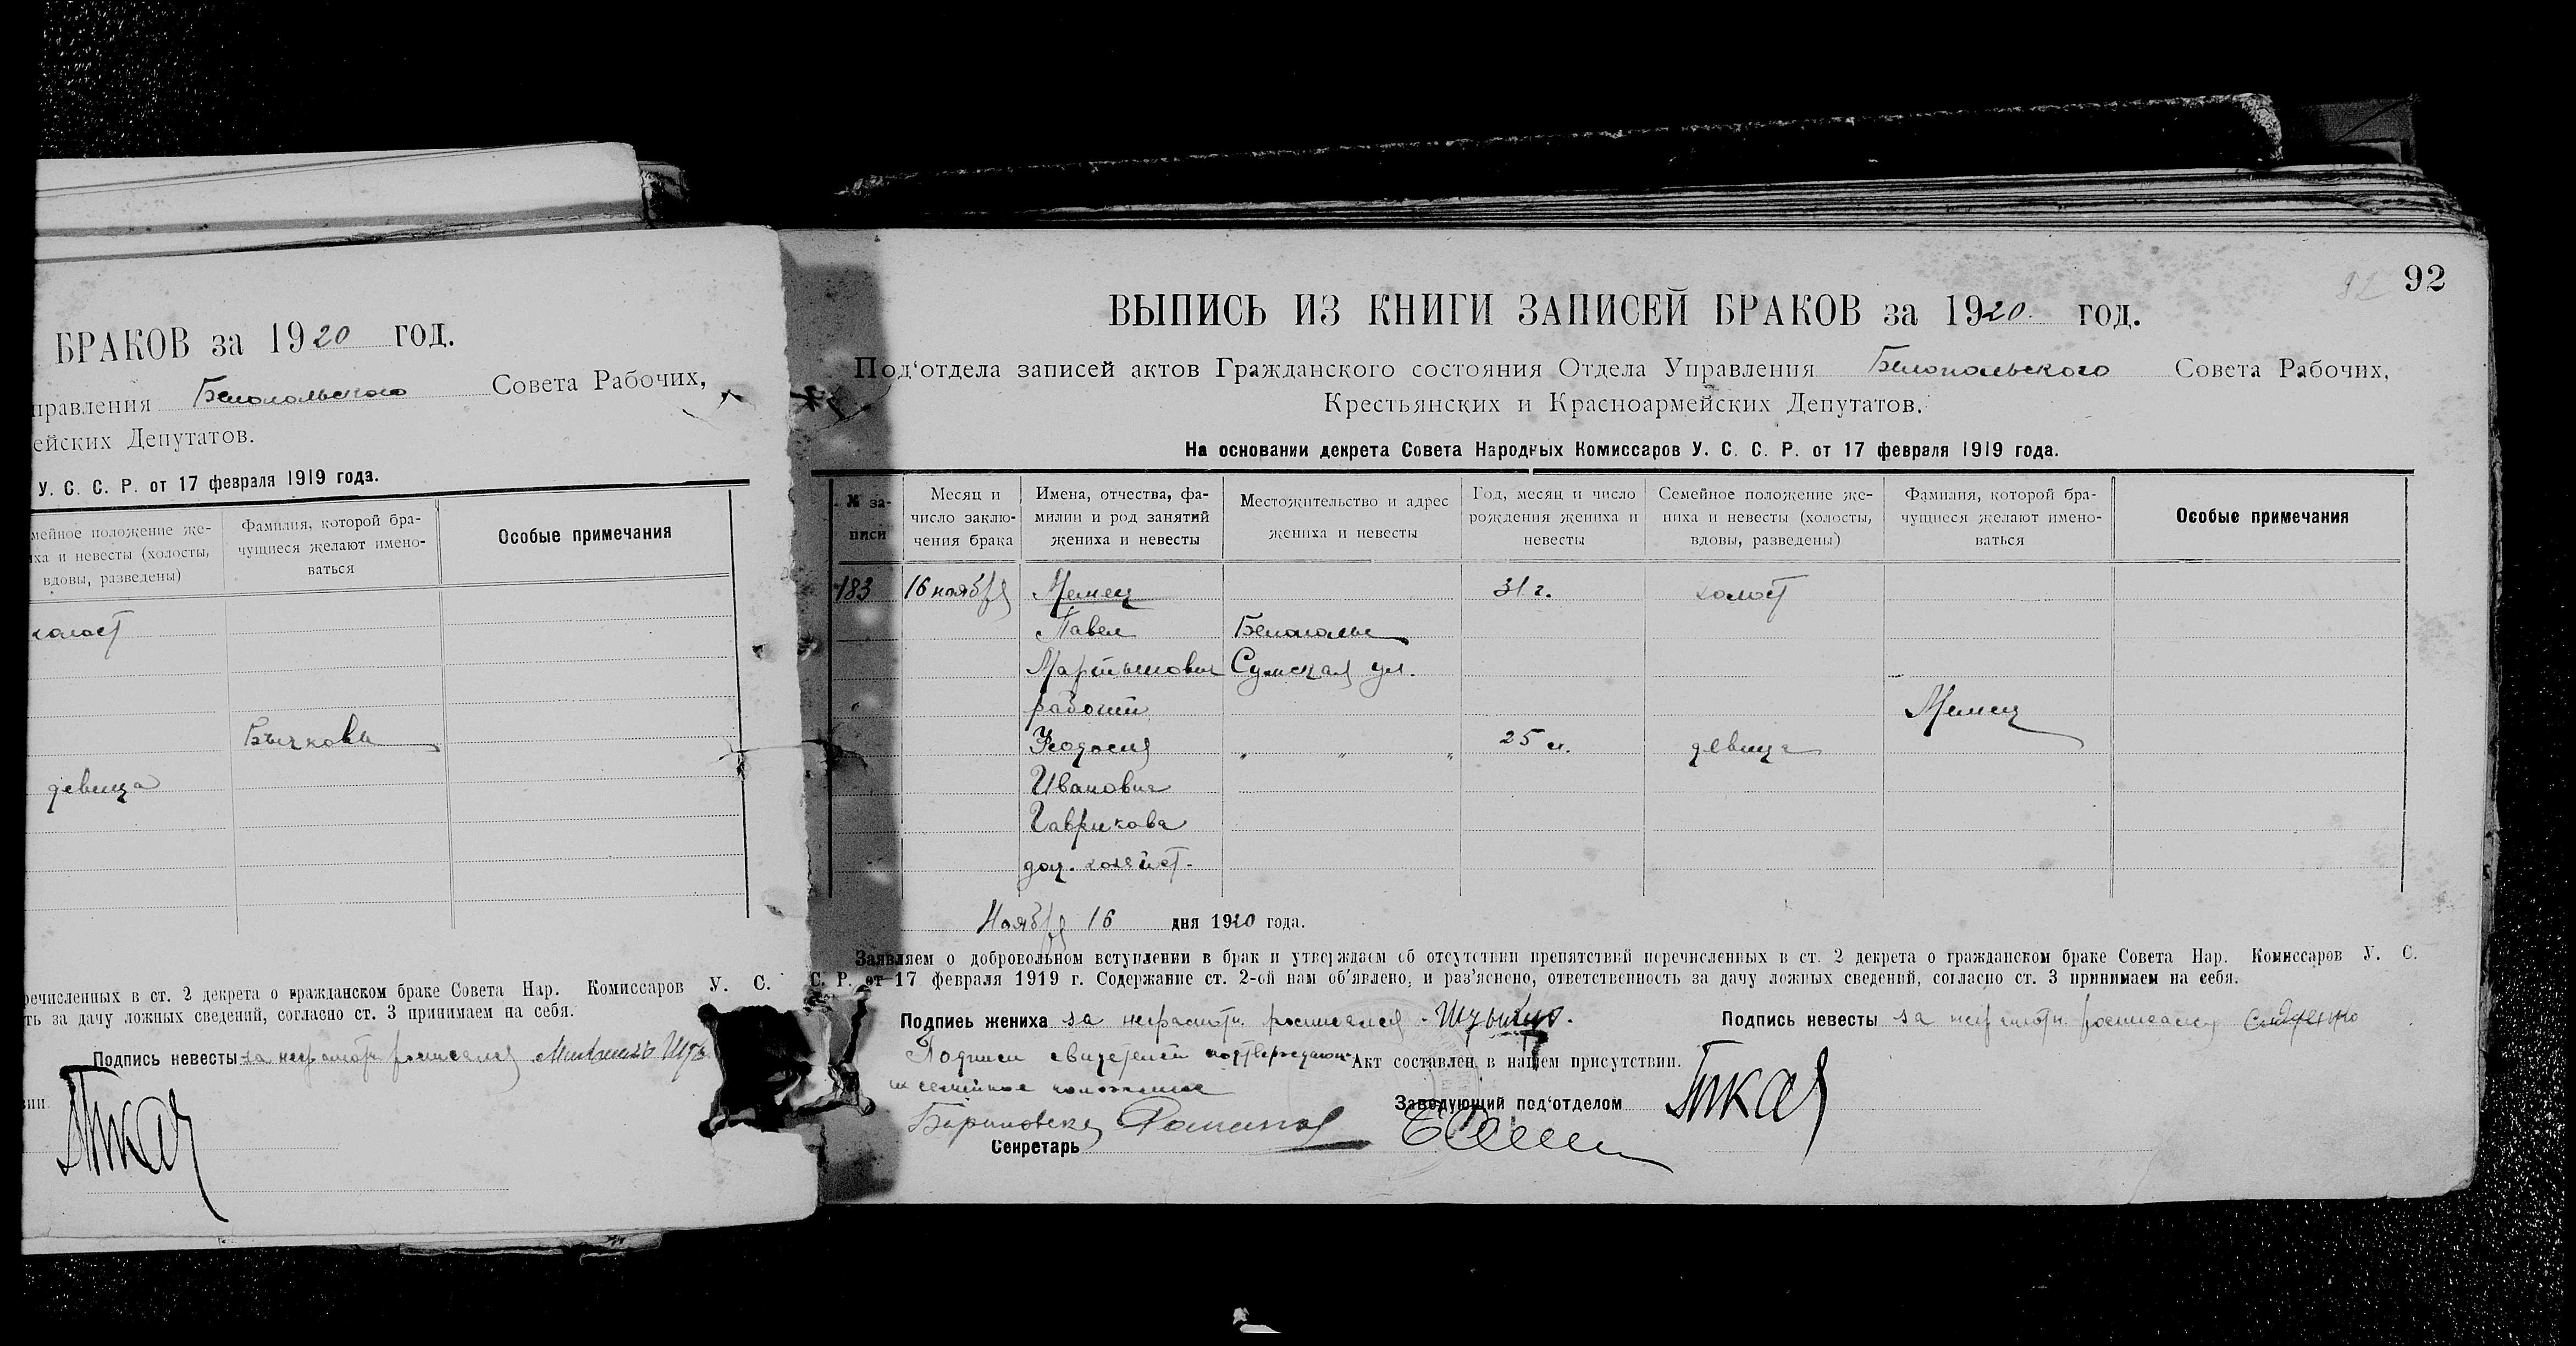 БРАКОВ за 1920 год.
правления Белопольского Совета Рабочих,
ейских Депутатов.
У. С. С. Р. от 17 февраля 1919 года.
мейное положение же-
иха и невесты (холосты,
вдовы, разведены)
Фамилия, которой бра-
чущиеся желают имено-
ваться
Особые примечания
холост
Бычковы
девица
речисленных в ст. 2 декрета о гражданском браке Совета Нар. Комиссаров У. С.
ть за дачу ложных сведений, согласно ст. 3 принимаем на себя.
Подпись невесты за неграмотн. росписался
вии.
92
92
ВЫПИСЬ ИЗ КНИГИ ЗАПИСЕЙ БРАКОВ за 1920 год.
Под‘отдела записей актов Гражданского состояния Отдела Управления Белопольского Совета Рабочих,
Крестьянских и Красноармейских Депутатов.
На основании декрета Совета Народных Комиссаров У. С. С. Р. от 17 февраля 1919 года.
№ за-
писи
Месяц и
число заклю-
чения брака
Имена, отчества, фа-
милии и род занятий
жениха и невесты
Местожительство и адрес
жениха и невесты
Год, месяц и число
рождения жениха и
невесты
Семейное положение же-
ниха и невесты (холосты,
вдовы, разведены)
Фамилия, которой бра-
чущиеся желают имено-
ваться
Особые примечания
183 16 ноября 31 г. холост
Павел Белополье
Мартынович Сумская ул.
рабочий
Феодосия " " " 25 л. девица
Ивановна
Гаврикова
дом. хозяйст.
Ноября 16 дня 1920 года.
Заявляем о добровольном вступлении в брак и утверждаем об отсутствии препятствий перечисленных в ст. 2 декрета о гражданском браке Совета Нар. Комиссаров У. С.
С. Р. от 17 февраля 1919 г. Содержание ст. 2-ой нам об‘явлено, и раз’яснено, ответственность за дачу ложных сведений, согласно ст. 3 принимаем на себя.
Подпись жениха за неграмотн. росписался
Подпись невесты за неграмотн. росписался
Подписи свидетелей подтверждающ.
их семейное положение
Акт составлен в нашем присутствии.
Заведующий под‘отделом
Секретарь